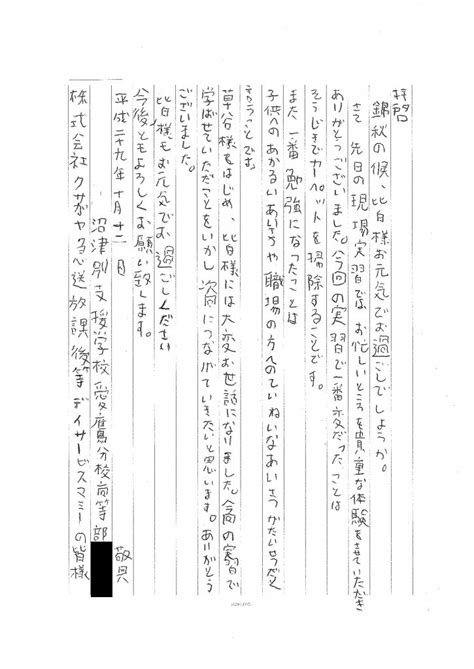 拝啓
錦秋の候、皆様お元気でお過ごしでしょうか。
さて先日の現場実習では、お忙しいところを貴重な体験をさせていただき
ありがとうございました。今回の実習で一番大変だったことは
そうじきでカーペットを掃除することです。
また一番勉強になったことは
子供へのあかるいあいさつや職場の方へのていねいなあいさつがたいせつだと
いうことです。
草谷様をはじめ、皆様には大変お世話になりました。今回の実習で
学ばせていただことをいかし次回につなげていきたいと思います。ありがとう
ございました。
皆様もお元気でお過ごしください
今後ともよろしくお願い致します。
敬具
平成二十九年十月十二日
沼津別支援学校愛鷹分校高等部
株式会社クサガヤ急送放課後等デイサービスマミーの皆様